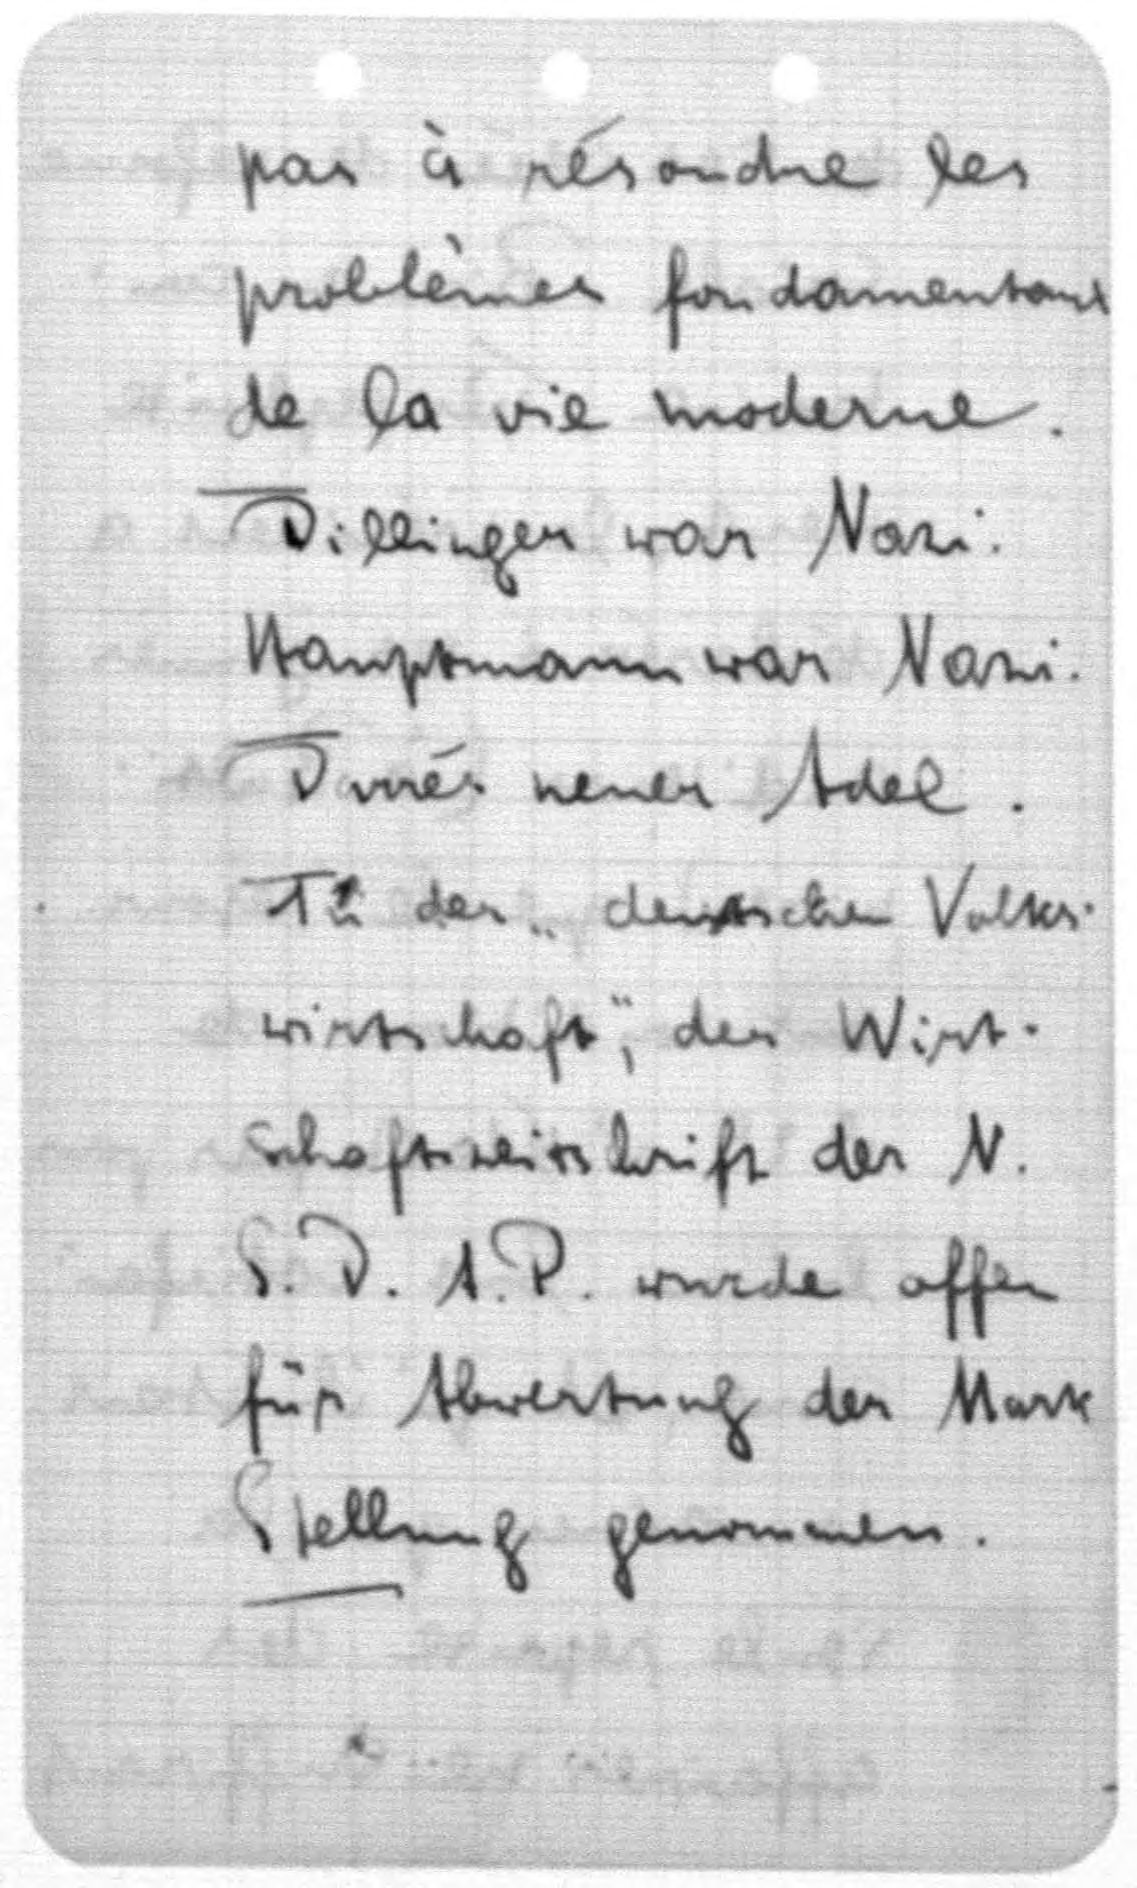 pas à résoudre les
problèmes fondamentaux
de la vie moderne.
Dillinger war Nazi.
Hauptmann war Nazi.
Darrés neuer Adel.
In der „deutschen Volks-
wirtschaft", der Wirt-
schaftszeitschrift der N.
S. D. A. P. wurde offen
für Abwertung der Mark
Stellung genommen.